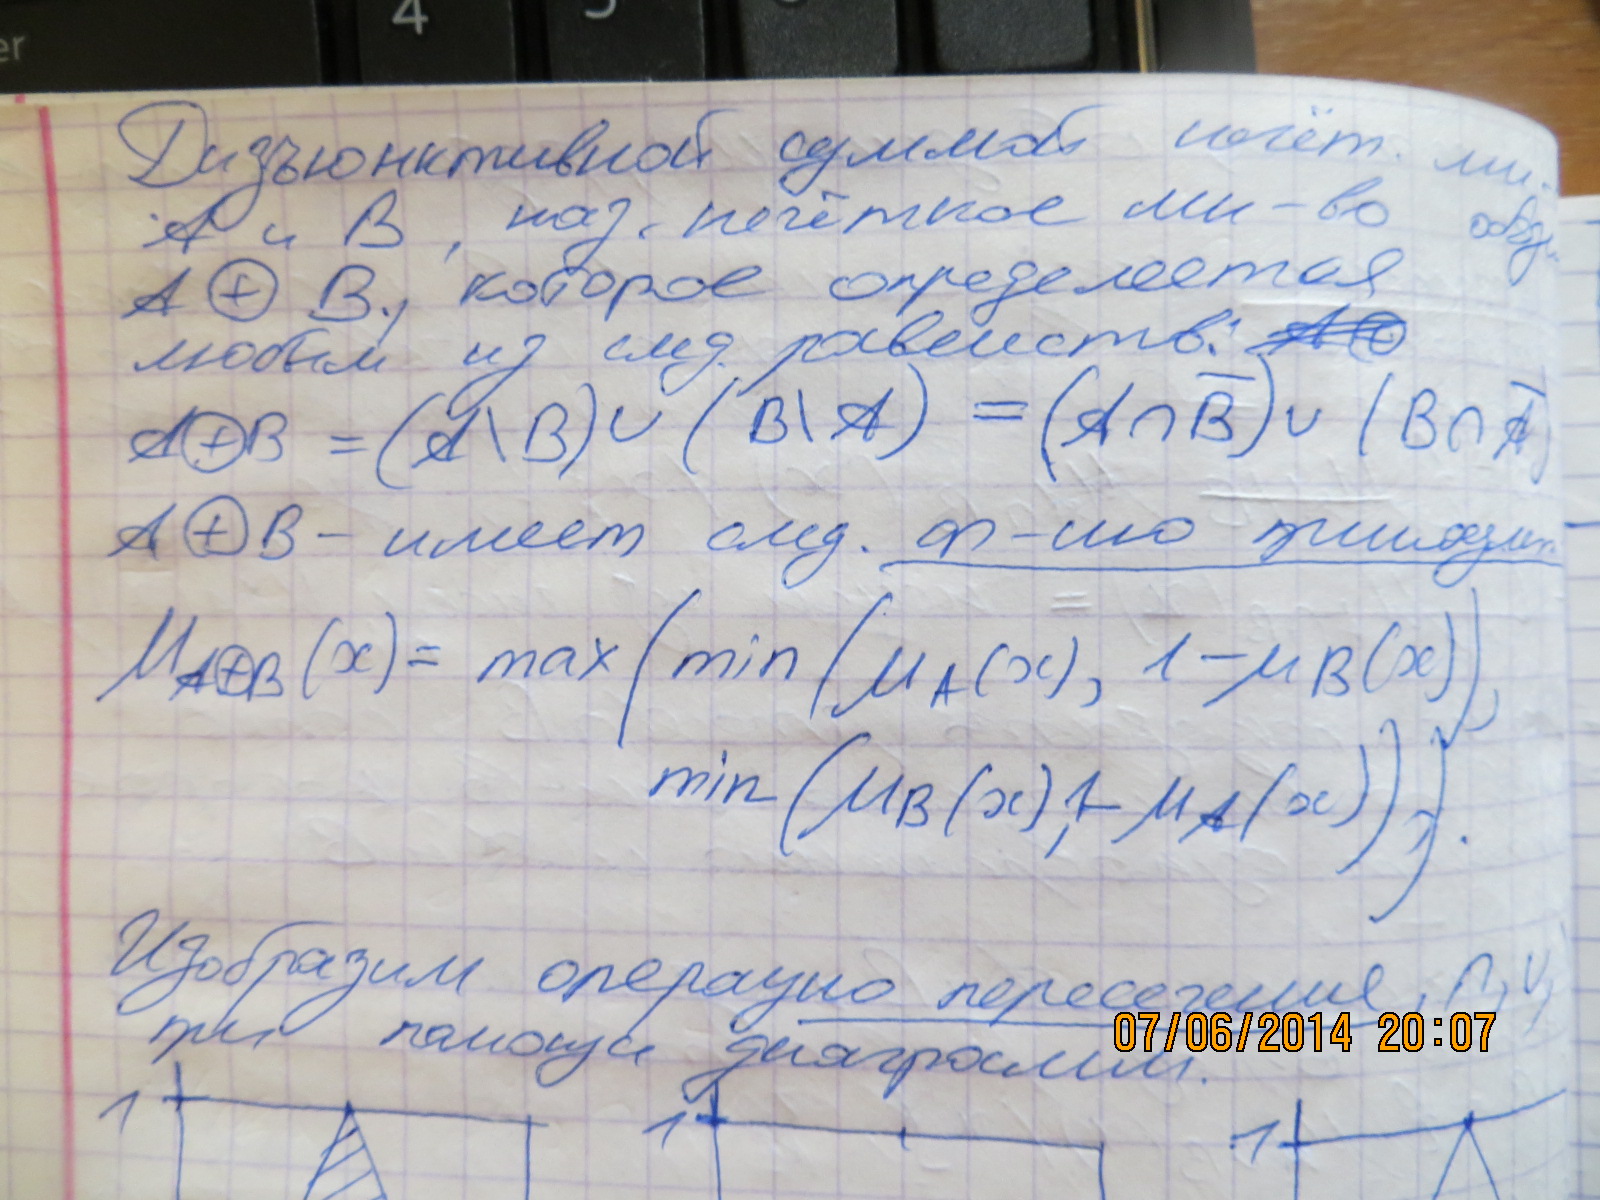 4 5
er
Дизъюнктивной суммой нечёт. мн-
A и B, наз. нечёткое мн-во обозн.
A ⊕ B, которое определяется
любым из след. равенств:
A⊕B = (A\B)∪(B\A) = (A∩B̅)∪(B∩A̅)
A⊕B – имеет след. ф-ию принадл.
μ_A⊕B(x) = max(min(μ_A(x), 1-μ_B(x)),
min(μ_B(x), 1-μ_A(x))).
Изобразим операцию пересечения, ∩, ∪,
при помощи диаграмм.
07/06/2014 20:07
1 1 1